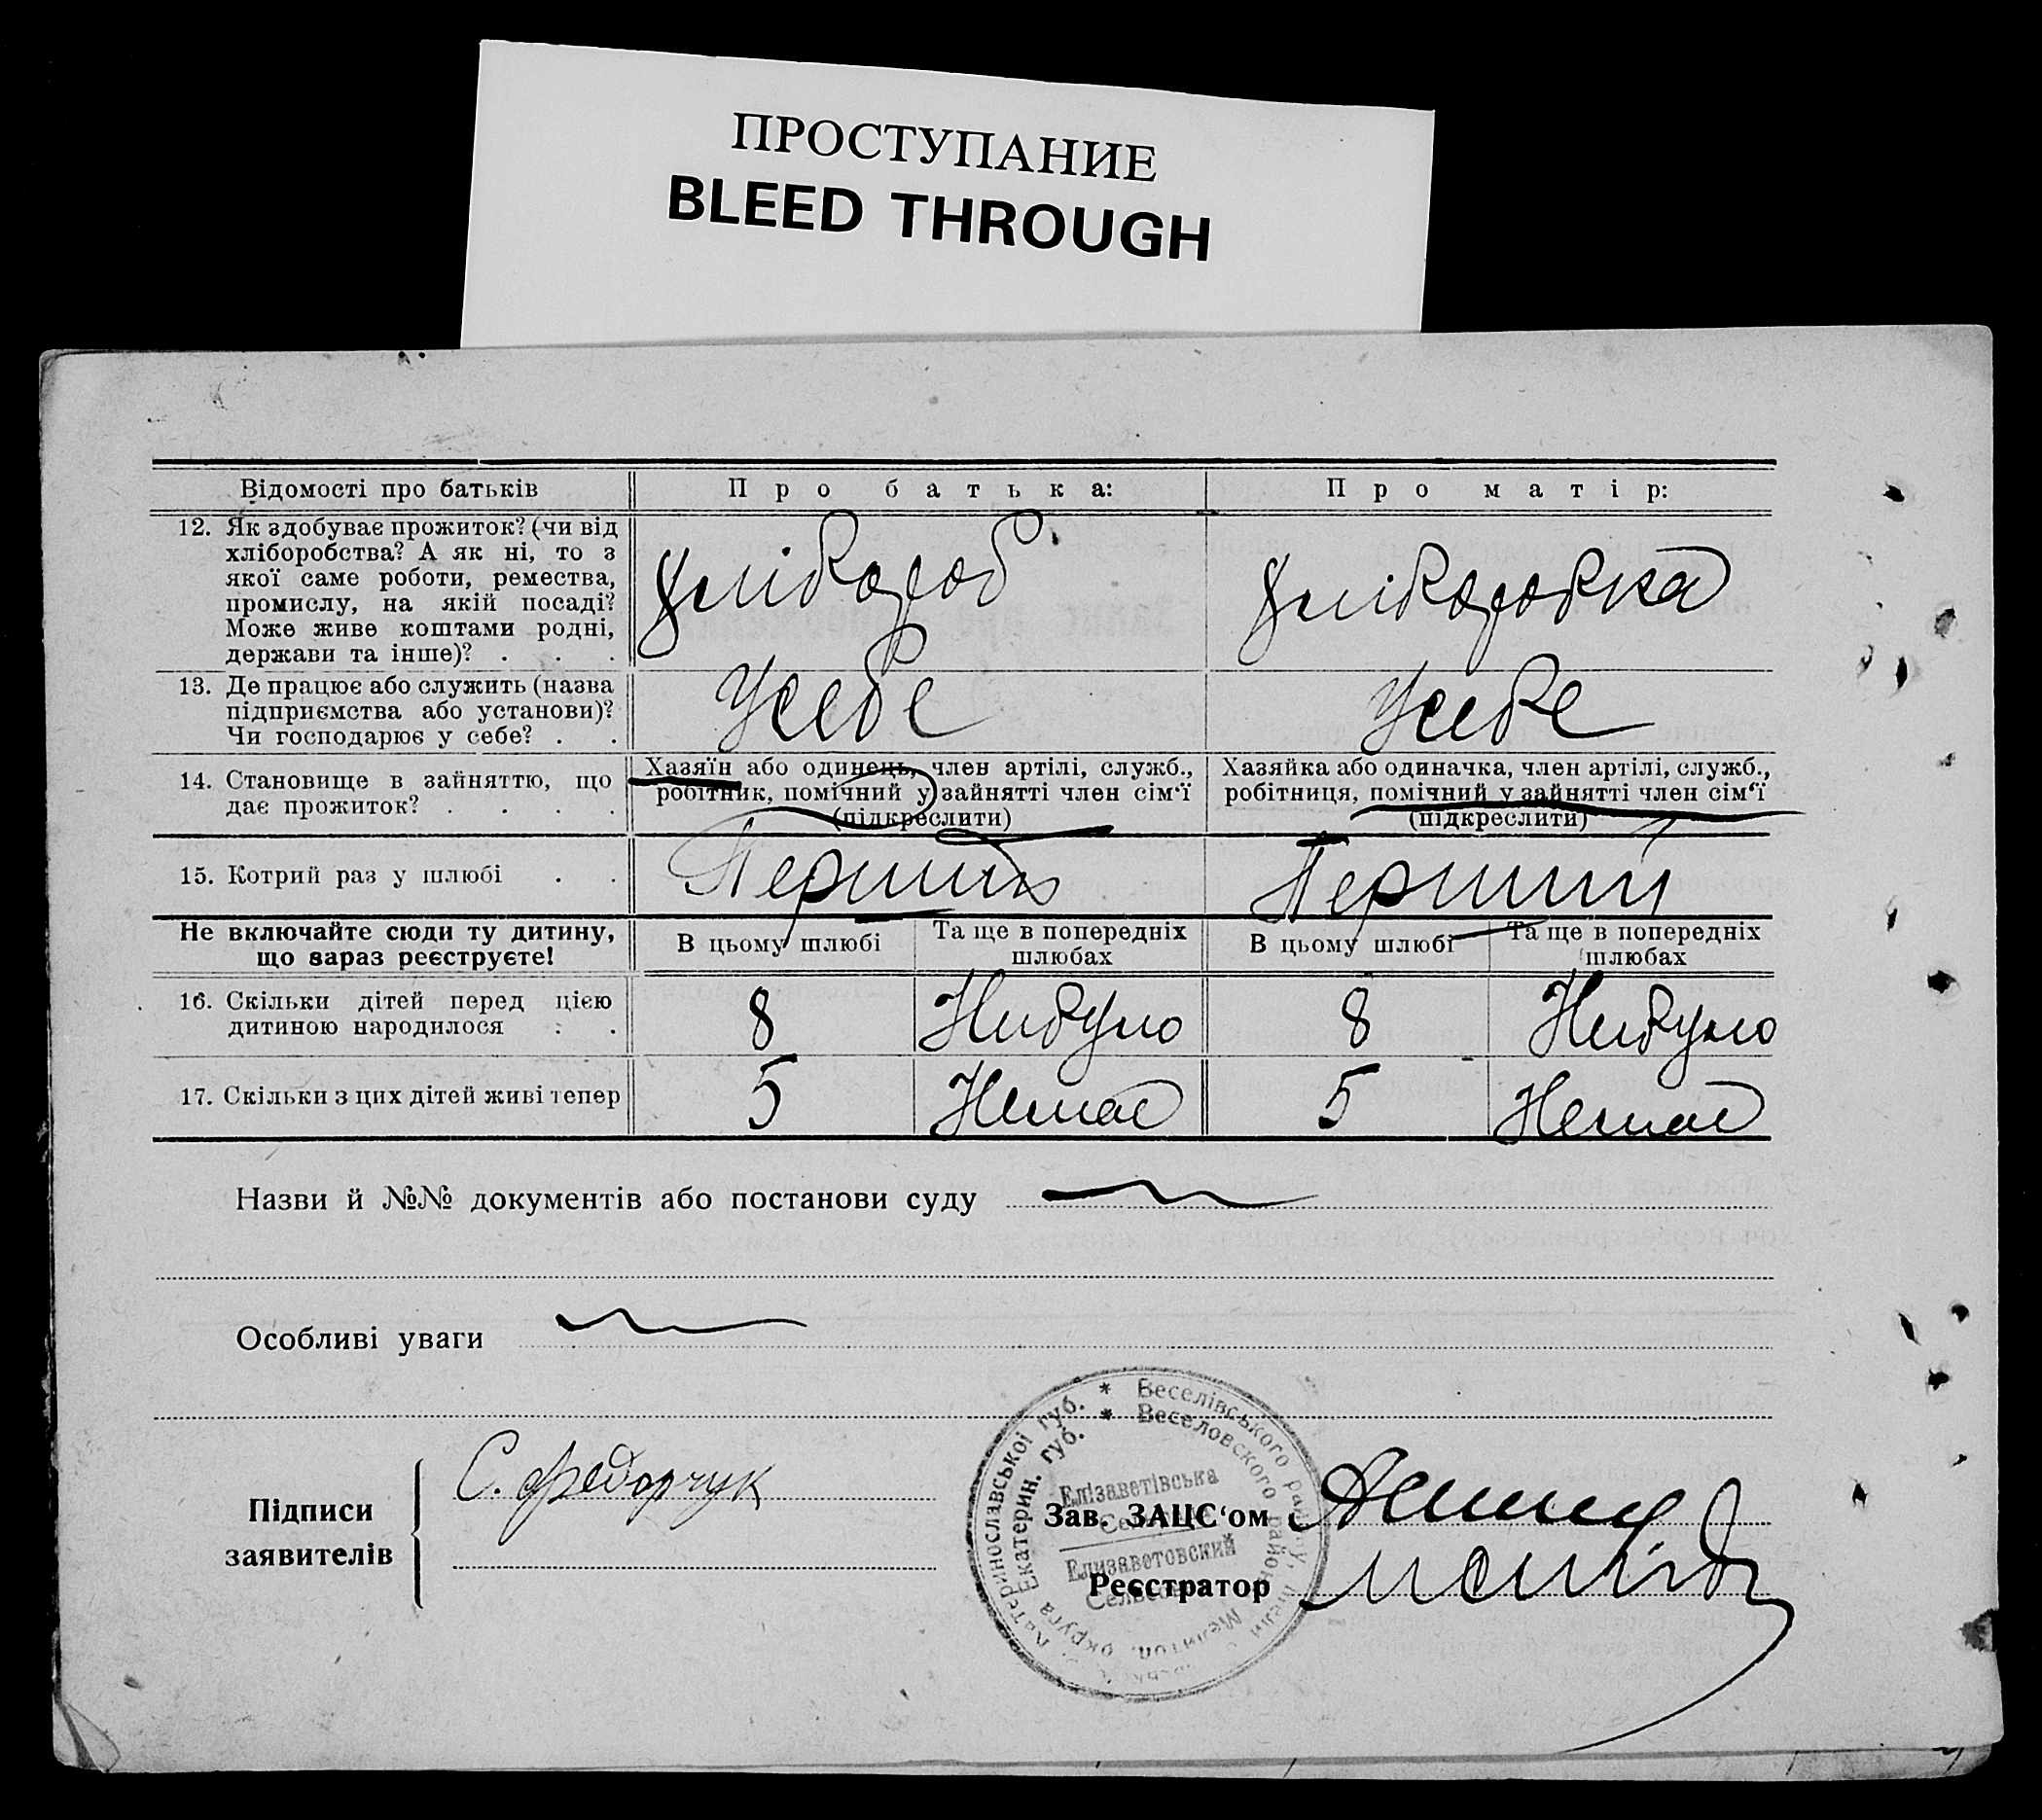 ПРОСТУПАНИЕ
BLEED THROUGH
Відомості про батьків
Про батька:
Про матір:
12. Як здобуває прожиток? (чи від
хліборобства? А як ні, то з
якої саме роботи, ремества,
промислу, на якій посаді?
Може живе коштами родні,
держави та інше)? . . .
Хлібороб
Хліборобка
13. Де працює або служить (назва
підприємства або установи)?
Чи господарює у себе? . .
Усебе
Усебе
14. Становище в зайняттю, що
дає прожиток? . . . .
Хазяїн або одинець, член артілі, служб.,
робітник, помічний у зайнятті член сім'ї
(підкреслити)
Хазяйка або одиначка, член артілі, служб.,
робітниця, помічний у зайнятті член сім'ї
(підкреслити)
15. Котрий раз у шлюбі . .
Перший
Перший
Не включайте сюди ту дитину,
що зараз реєструєте!
В цьому шлюбі
Та ще в попередніх
шлюбах
В цьому шлюбі
Та ще в попередніх
шлюбах
16. Скільки дітей перед цією
дитиною народилося . .
8
Небуло
8
Небуло
17. Скільки з цих дітей живі тепер
5
Немає
5
Немає
Назви й №№ документів або постанови суду
Особливі уваги
Підписи
заявителів
С. Федорчук
Зав. ЗАЦС'ом
Реєстратор
* Веселівського району
* Веселовского район
Катеринославської губ.
Екатерин. губ.
Мелитоп. округа
Елізаветівська
Елизаветовский